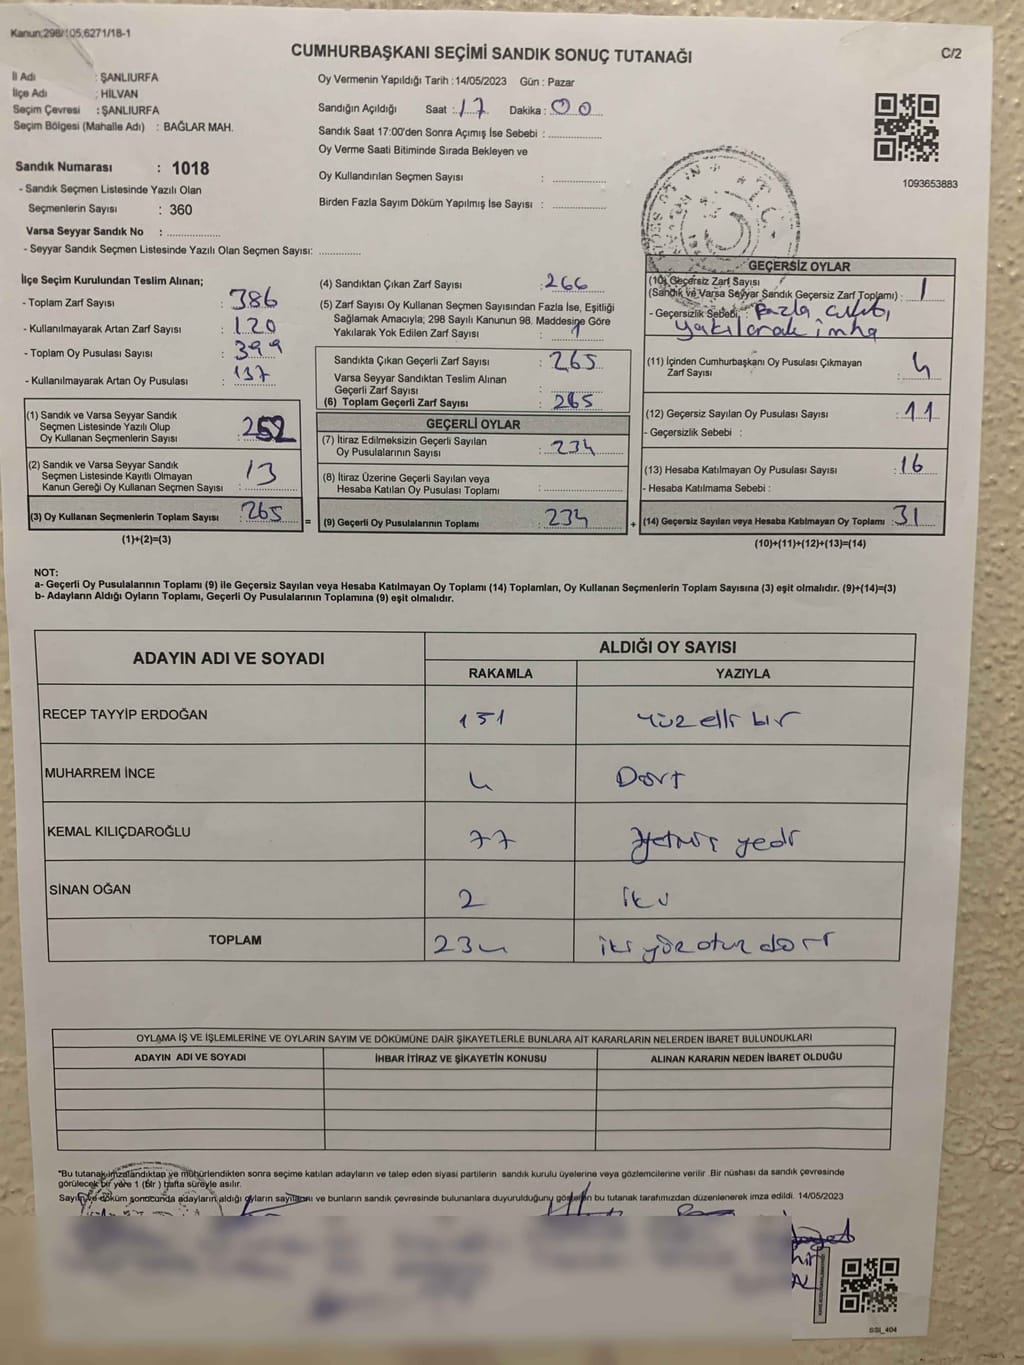 Kanun;298/105;6271/18-1
CUMHURBAŞKANI SEÇİMİ SANDIK SONUÇ TUTANAĞI
C/2
İl Adı : ŞANLIURFA
İlçe Adı : HİLVAN
Seçim Çevresi : ŞANLIURFA
Seçim Bölgesi (Mahalle Adı) : BAĞLAR MAH.
Sandık Numarası : 1018
- Sandık Seçmen Listesinde Yazılı Olan
Seçmenlerin Sayısı : 360
Varsa Seyyar Sandık No :
- Seyyar Sandık Seçmen Listesinde Yazılı Olan Seçmen Sayısı:
Oy Vermenin Yapıldığı Tarih : 14/05/2023 Gün : Pazar
Sandığın Açıldığı Saat : 17 Dakika : 00
Sandık Saat 17:00'den Sonra Açımış İse Sebebi :
Oy Verme Saati Bitiminde Sırada Bekleyen ve
Oy Kullandırılan Seçmen Sayısı :
Birden Fazla Sayım Döküm Yapılmış İse Sayısı :
1093653883
T.C.
İlçe Seçim Kurulundan Teslim Alınan;
- Toplam Zarf Sayısı : 386
- Kullanılmayarak Artan Zarf Sayısı : 120
- Toplam Oy Pusulası Sayısı : 399
- Kullanılmayarak Artan Oy Pusulası : 137
(1) Sandık ve Varsa Seyyar Sandık
Seçmen Listesinde Yazılı Olup
Oy Kullanan Seçmenlerin Sayısı : 252
(2) Sandık ve Varsa Seyyar Sandık
Seçmen Listesinde Kayıtlı Olmayan
Kanun Gereği Oy Kullanan Seçmen Sayısı : 13
(3) Oy Kullanan Seçmenlerin Toplam Sayısı : 265
(1)+(2)=(3)
(4) Sandıktan Çıkan Zarf Sayısı : 266
(5) Zarf Sayısı Oy Kullanan Seçmen Sayısından Fazla İse, Eşitliği
Sağlamak Amacıyla; 298 Sayılı Kanunun 98. Maddesine Göre
Yakılarak Yok Edilen Zarf Sayısı : 1
Sandıkta Çıkan Geçerli Zarf Sayısı : 265
Varsa Seyyar Sandıktan Teslim Alınan
Geçerli Zarf Sayısı :
(6) Toplam Geçerli Zarf Sayısı : 265
GEÇERLİ OYLAR
(7) İtiraz Edilmeksizin Geçerli Sayılan
Oy Pusulalarının Sayısı : 234
(8) İtiraz Üzerine Geçerli Sayılan veya
Hesaba Katılan Oy Pusulası Toplamı :
= (9) Geçerli Oy Pusulalarının Toplamı : 234
GEÇERSİZ OYLAR
(10) Geçersiz Zarf Sayısı
(Sandık ve Varsa Seyyar Sandık Geçersiz Zarf Toplamı) : 1
- Geçersizlik Sebebi : Fazla çıktı,
yakılarak imha
(11) İçinden Cumhurbaşkanı Oy Pusulası Çıkmayan
Zarf Sayısı : 4
(12) Geçersiz Sayılan Oy Pusulası Sayısı : 11
- Geçersizlik Sebebi :
(13) Hesaba Katılmayan Oy Pusulası Sayısı : 16
- Hesaba Katılmama Sebebi :
+ (14) Geçersiz Sayılan veya Hesaba Katılmayan Oy Toplamı : 31
(10)+(11)+(12)+(13)=(14)
NOT:
a- Geçerli Oy Pusulalarının Toplamı (9) ile Geçersiz Sayılan veya Hesaba Katılmayan Oy Toplamı (14) Toplamları, Oy Kullanan Seçmenlerin Toplam Sayısına (3) eşit olmalıdır. (9)+(14)=(3)
b- Adayların Aldığı Oyların Toplamı, Geçerli Oy Pusulalarının Toplamına (9) eşit olmalıdır.
ADAYIN ADI VE SOYADI
ALDIĞI OY SAYISI
RAKAMLA YAZIYLA
RECEP TAYYİP ERDOĞAN 151 Yüz elli bir
MUHARREM İNCE 4 Dört
KEMAL KILIÇDAROĞLU 77 Yetmiş yedi
SİNAN OĞAN 2 İki
TOPLAM 234 iki yüz otuz dört
OYLAMA İŞ VE İŞLEMLERİNE VE OYLARIN SAYIM VE DÖKÜMÜNE DAİR ŞİKAYETLERLE BUNLARA AİT KARARLARIN NELERDEN İBARET BULUNDUKLARI
ADAYIN ADI VE SOYADI İHBAR İTİRAZ VE ŞİKAYETİN KONUSU ALINAN KARARIN NEDEN İBARET OLDUĞU
"Bu tutanak imzalandıktan ve mühürlendikten sonra seçime katılan adayların ve talep eden siyasi partilerin sandık kurulu üyelerine veya gözlemcilerine verilir .Bir nüshası da sandık çevresinde
görülecek bir yere 1 (Bir ) hafta süreyle asılır.
Sayım ve döküm sonucunda adayların aldığı oyların sayılarını ve bunların sandık çevresinde bulunanlara duyurulduğunu gösteren bu tutanak tarafımızdan düzenlenerek imza edildi. 14/05/2023
SSI_404